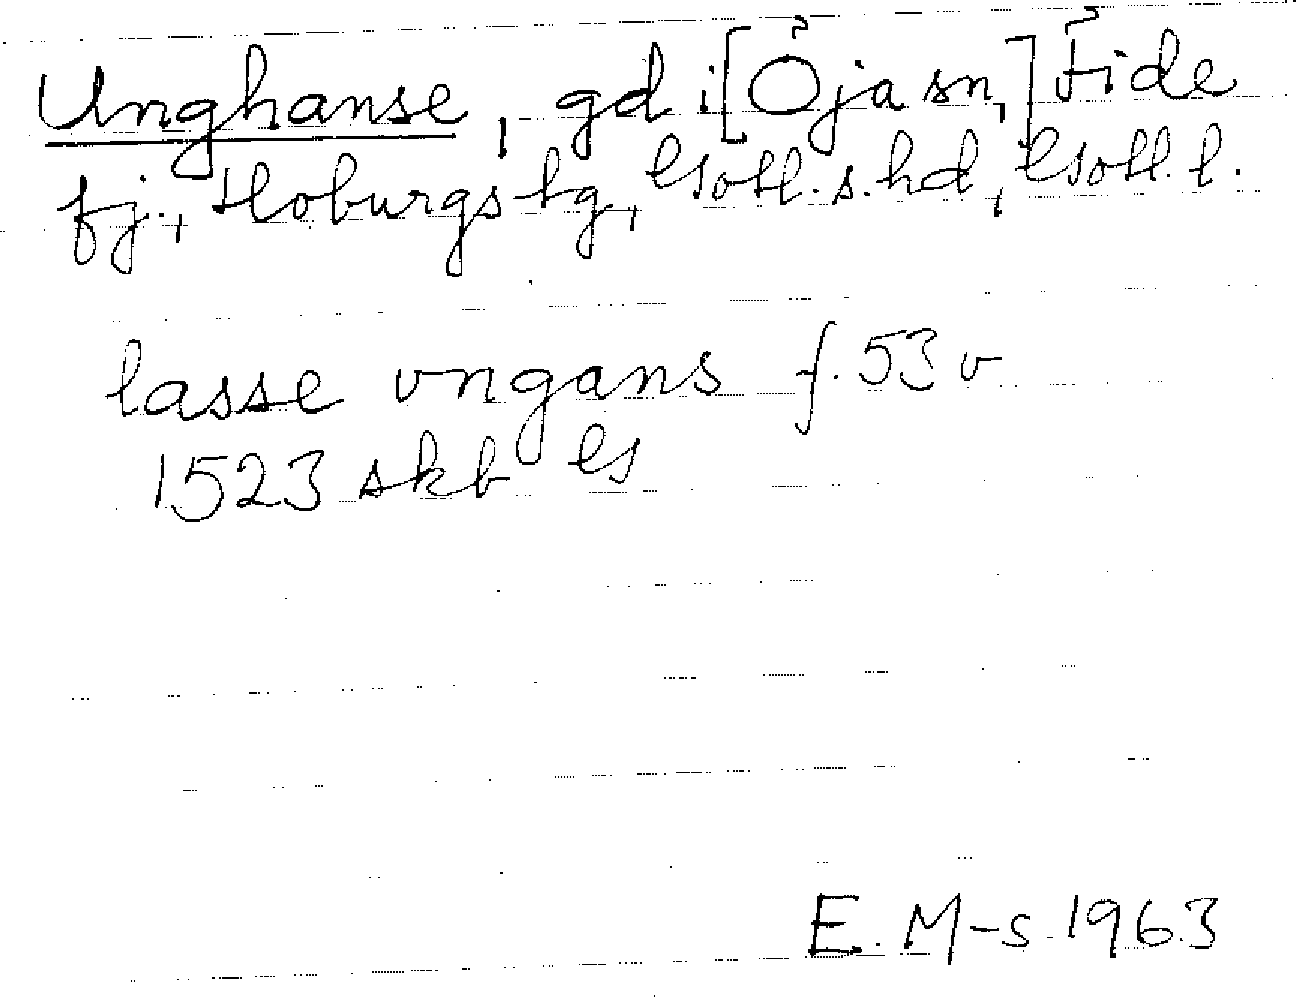 Unghanse, gd i [Öja sn,] Fide
fj., Hoburgs tg, Gotl. s. hd, Gotl. l.
lasse vngans f. 53 v
1523 skb G
E. M-s. 1963